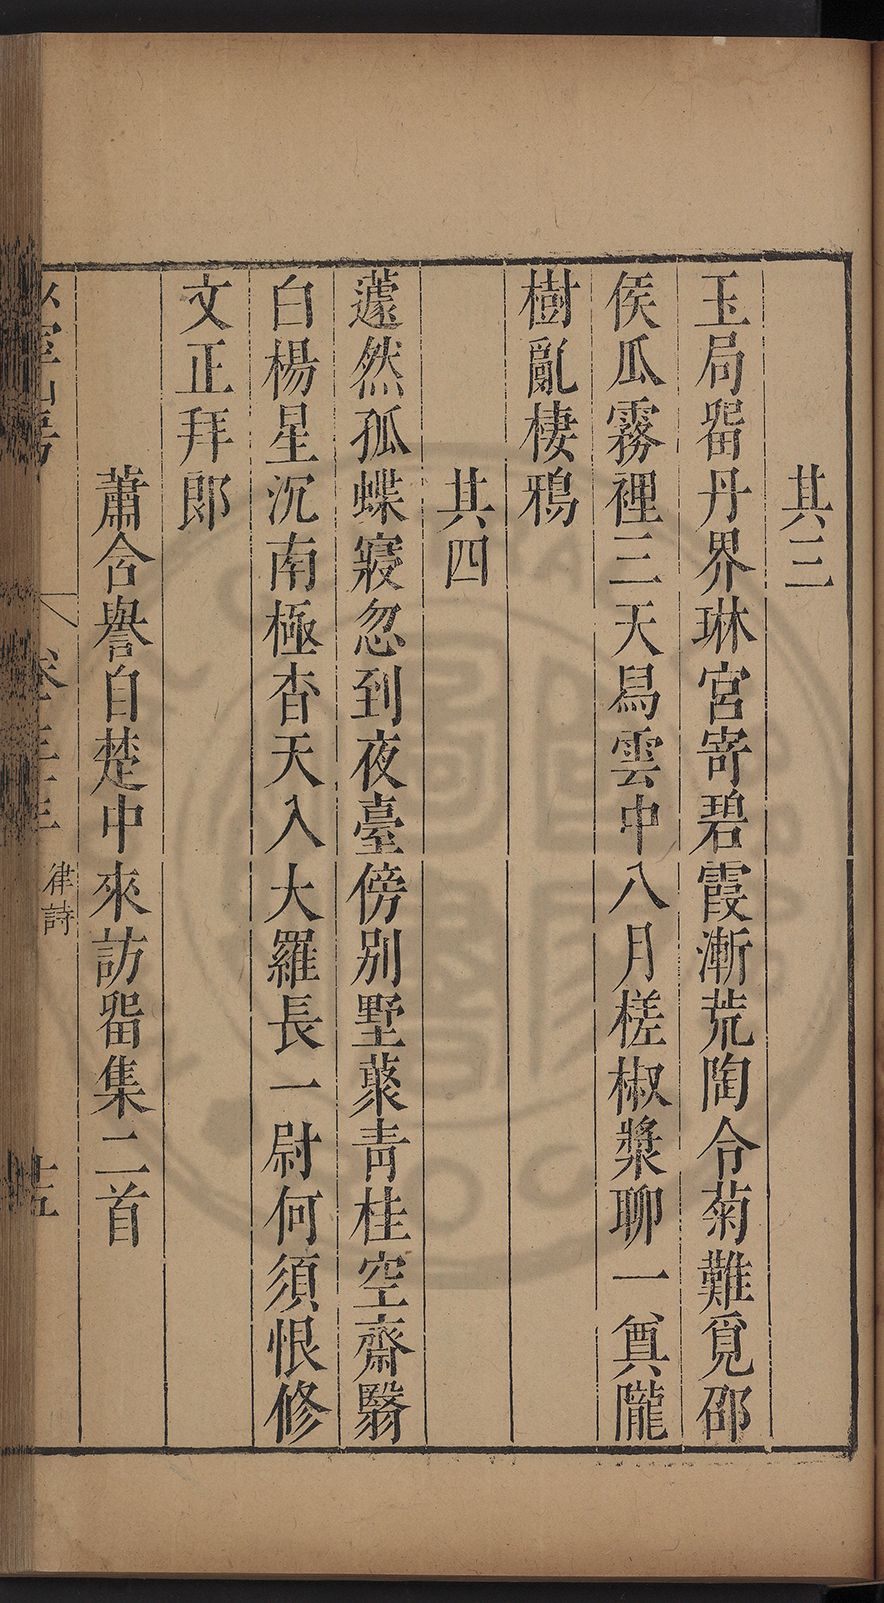 其三
玉局畱丹界琳宮寄碧霞漸荒陶令菊難覓邵
侯瓜霧裡三天舄雲中八月槎椒漿聊一奠隴
樹亂棲鴉
其四
蘧然孤蝶寢忽到夜臺傍別墅藂青桂空齋翳
白楊星沉南極杳天入大羅長一尉何須恨修
文正拜郎
蕭含譽自楚中來訪畱集二首
律詩